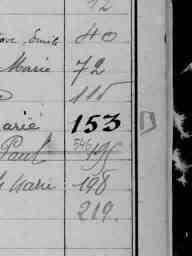 12
ave, Emile 40
Marie 72
115
arie 153
Paul 546 196
Marie 198
219.